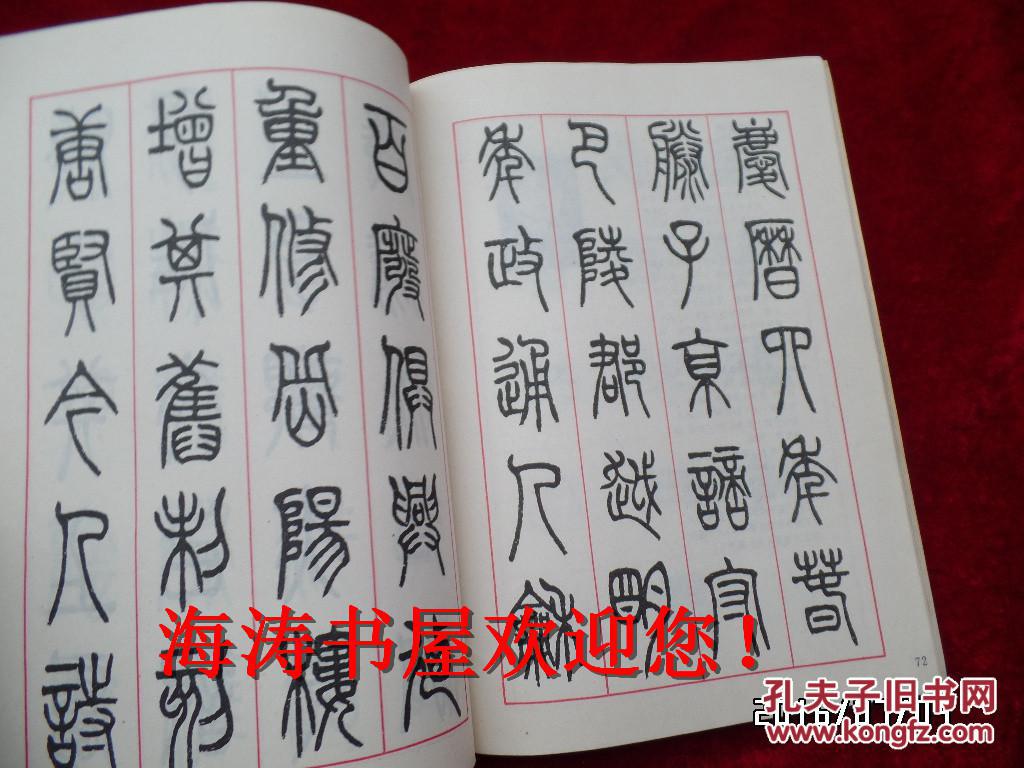 慶曆四年春
滕子京謫守
巴陵郡越明
年政通人龢
百廢俱興乃
重修岳陽樓
增其舊制刻
唐賢今人詩
72
海涛书屋欢迎您！
孔夫子旧书网
www.kongfz.cn